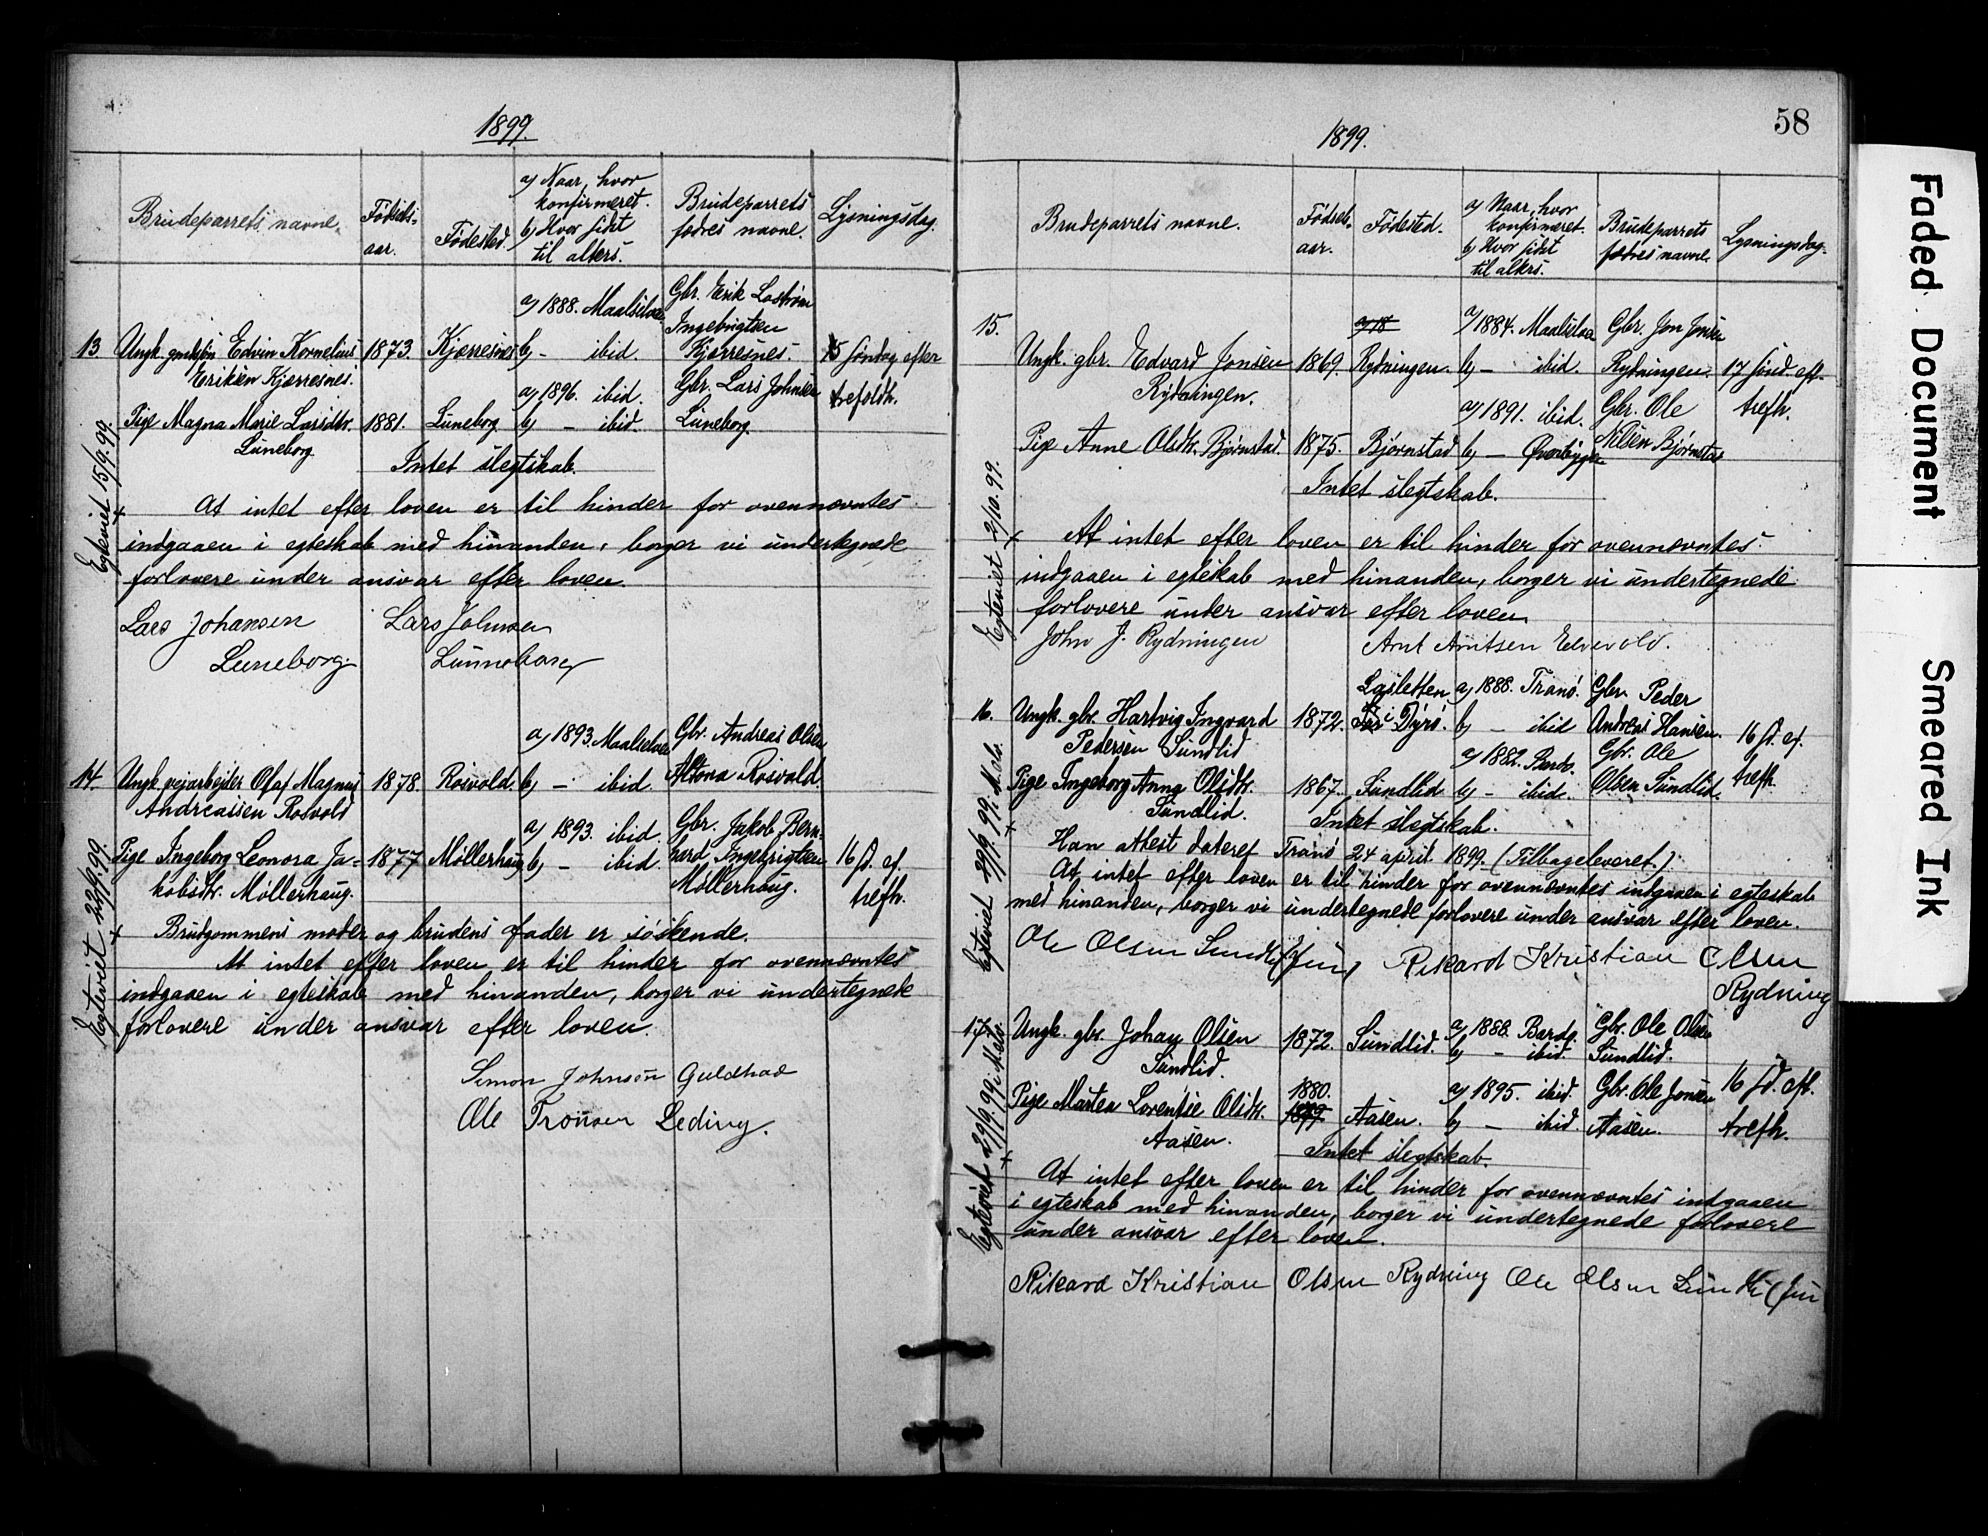 1899.
Brudeparrets navne.
Fødsels-
aar.
Fødested.
a) Naar, hvor
konfirmeret.
b) Hvor sidst
til alters.
Brudeparrets
fædres navne.
Lysningsdag.
13.
Ungk. Edvin Kornelius
Eriksen Kjærresnes.
1873.
Kjærresnes
a) 1888. Maalselven
b) - ibid.
Gbr. Erik
Ingebrigtsen
Kjærresnes.
15 søndag efter
trefoldh.
Pige Magna Marie Larsdtr.
Luneborg
1881.
Luneborg
a) 1896. ibid.
b) - ibid.
Gbr. Lars Johnsen
Luneborg.
Intet slegtskab.
Egteviet 15/9. 99.
At intet efter loven er til hinder for ovennævntes
indgaaen i egteskab med hinanden, borger vi undertegnede
forlovere under ansvar efter loven.
Lars Johansen Lars Johnsen
Luneborg.
14.
Ungk. vejarbejder Olaf Magnus
Andreassen Rosvold
1878.
Rosvold.
a) 1893. Maalselven
b) - ibid.
Gbr. Andreas Olsen
Altona Rosvold.
Pige Ingeborg Leonora Ja-
kobsdtr. Møllerhaug.
1877.
Møllerhaug
a) 1893. ibid.
b) - ibid
Gbr. Jakob Bern-
hard Ingebrigtsen
Møllerhaug.
16 s. ef.
trefh.
Egteviet 22/9. 99.
Brudgommens moder og brudens fader er søskende.
At intet efter loven er til hinder for ovennævntes
indgaaen i egteskab med hinanden, borger vi undertegnede
forlovere under ansvar efter loven.
Simon Johnson Guldhav
Ole Tronsen Leding.
58
1899.
Brudeparrets navne.
Fødsels-
aar.
Fødested.
a) Naar, hvor
konfirmeret.
b) Hvor sidst
til alters.
Brudeparrets
fædres navne.
Lysningsdag.
15.
Ungk. gbr. Edvard Jonsen
Rydningen.
1869.
a) 18
Rydningen.
a) 1884. Maalselven
b) - ibid.
Gbr. Jon Jonsen
Rydningen.
17 sønd eft.
trefh.
Pige Anne Olsdtr. Bjørnstad.
1875.
Bjørnstad
a) 1891. ibid.
b) - Øverbygd
Gbr. Ole
Nilsen Bjørnstad
Intet slegtskab.
Egteviet 2/10. 99.
At intet efter loven er til hinder for ovennævntes
indgaaen i egteskab med hinanden, borger vi undertegnede
forlovere under ansvar efter loven.
John J. Rydningen Arnt Arntsen Elvevold.
16.
Ungk. gbr. Hartvig Ingvard
Pedersen Sundlid
1872.
i Dyrø.
a) 1888. Tranø.
b) - ibid
Gbr. Peder
Andreas Hansen.
16 s. ef.
trefh.
Pige Ingeborg Anna Olsdtr.
Sundlid.
1867.
Sundlid
a) 1882. Bardo.
b) - ibid.
Gbr. Ole
Olsen Sundlid.
Intet slegtskab.
Egteviet 29/9. 99. i M.elv.
Han attest dateret Tranø 24 april 1899. (Tilbageleveret.)
At intet efter loven er til hinder for ovennævntes indgaaen i egteskab
med hinanden, borger vi undertegnede forlovere under ansvar efter loven.
Ole Olsen Sundli (jun) Rikard Kristian Olsen
Rydning
17.
Ungk. gbr. Johan Olsen
Sundlid.
1872.
Sundlid.
a) 1888. Bardo.
b) - ibid.
Gbr. Ole Olsen
Sundlid.
16 s. eft.
trefh.
Pige Marten Lorentse Olsdtr.
Aasen.
1880.
1879
Aasen.
a) 1895. ibid.
b) - ibid.
Gbr. Ole Jonsen
Aasen.
Intet slegtskab.
Egteviet 29/9. 99 i M.elv.
At intet efter loven er til hinder for ovennævntes indgaaen
i egteskab med hinanden, borger vi undertegnede forlovere
under ansvar efter loven.
Rikard Kristian Olsen Rydning Ole Olsen Sundli (jun
Faded Document
Smeared Ink